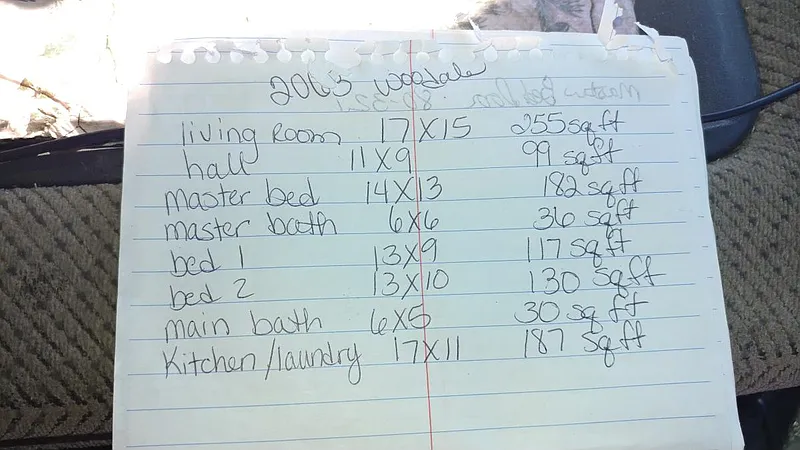 2063 Woodale
living Room 17X15 255 sqft
hall 11X9 99 sqft
master bed 14X13 182 sqft
master bath 6X6 36 sqft
bed 1 13X9 117 sqft
bed 2 13X10 130 sqft
main bath 6X5 30 sq ft
Kitchen/laundry 17X11 187 sqft